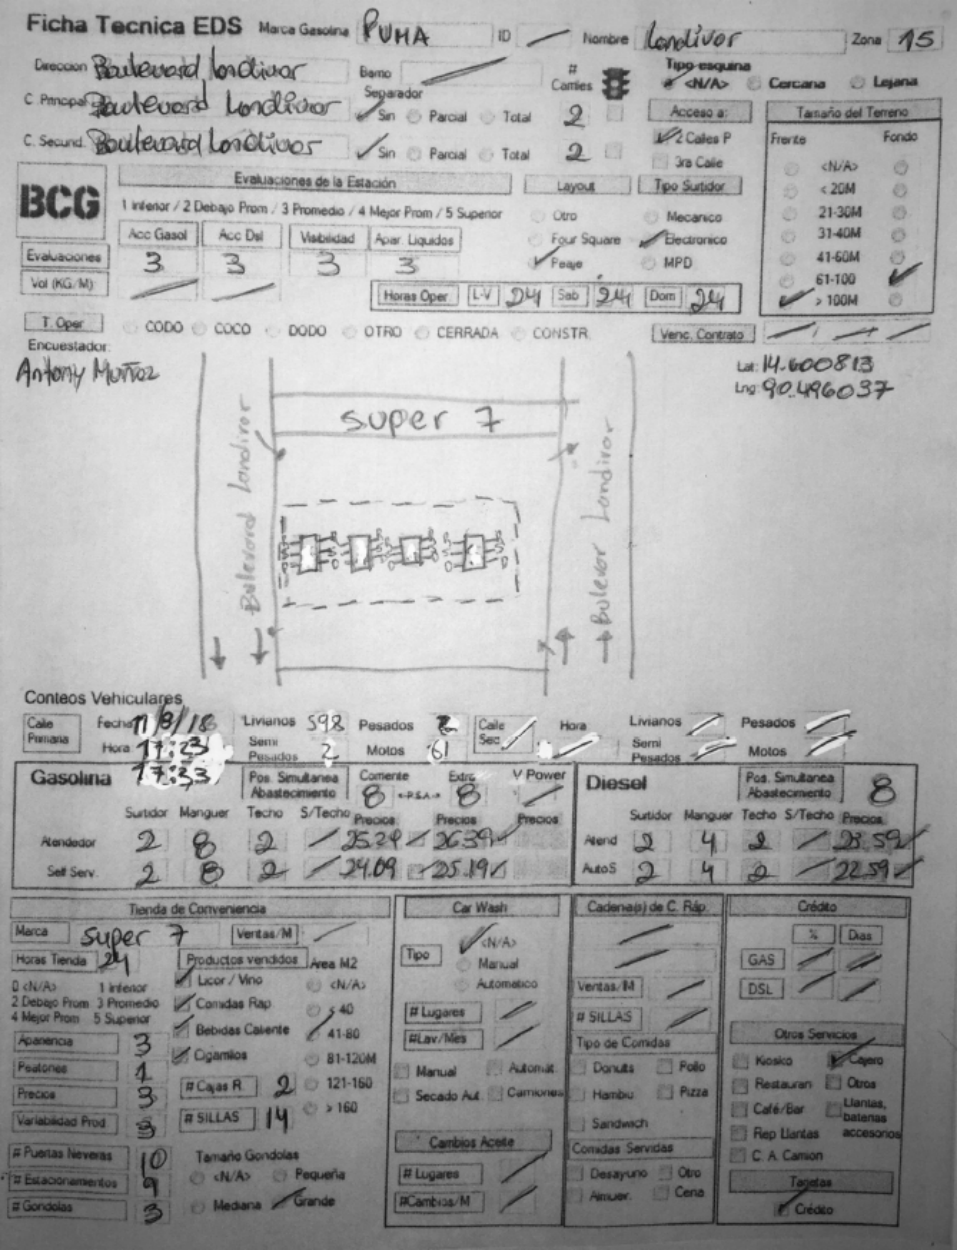 Ficha Tecnica EDS Marca Gasolina PUMA ID Nombre Landivar Zona 15
Direccion Boulevard landivar Barrio # Carriles Tipo esquina <N/A> Cercana Lejana
C. Principal Boulevard Landivar Separador Sin Parcial Total 2 Acceso a: Tamaño del Terreno
C. Secund. Boulevard Landivar Sin Parcial Total 2 2 Calles P Frente Fondo
3ra Calle <N/A>
BCG Evaluaciones de la Estación Layout Tipo Surtidor < 20M
1 Inferior / 2 Debajo Prom / 3 Promedio / 4 Mejor Prom / 5 Superior Otro Mecanico 21-30M
Acc Gasol Acc Dsl Visibilidad Apar. Liquidos Four Square Electronico 31-40M
Evaluaciones 3 3 3 3 Peaje MPD 41-60M
Vol (KG/M) Horas Oper L-V 24 Sab 24 Dom 24 61-100
> 100M
T. Oper CODO COCO DODO OTRO CERRADA CONSTR. Venc. Contrato
Encuestador:
Antony Muñoz Lat: 14.600813
Lng: 90.496037
super 7
Bulevard Landivar
Bulevar Landivar
Conteos Vehiculares
Calle Primaria Fecha 11/8/18 Livianos 598 Pesados 2 Calle Sec Hora Livianos Pesados
Hora 17:23 Semi Pesados 2 Motos 61 Semi Pesados Motos
17:33
Gasolina Pos. Simultanea Abastecimiento Corriente 8 <-P.S.A.-> Extra 8 V Power Diesel Pos. Simultanea Abastecimiento 8
Surtidor Manguer Techo S/Techo Precios Precios Precios Surtidor Manguer Techo S/Techo Precios
Atendedor 2 8 2 25.29 26.39 Atend 2 4 2 23.59
Self Serv. 2 8 2 24.09 25.19 AutoS 2 4 2 22.59
Tienda de Conveniencia Car Wash Cadena(s) de C. Ráp. Crédito
Marca super 7 Ventas/M Tipo <N/A> % Dias
Horas Tienda 24 Productos vendidos Area M2 Manual GAS
0 <N/A> 1 Inferior Licor / Vino <N/A> Automatico Ventas/M DSL
2 Debajo Prom 3 Promedio Comidas Rap < 40 # Lugares # SILLAS
4 Mejor Prom 5 Superior Bebidas Caliente 41-80 #Lav/Mes Tipo de Comidas Otros Servicios
Apariencia 3 Cigarrillos 81-120M Manual Automat. Donuts Pollo Kiosko Cajero
Peatones 1 # Cajas R. 2 121-160 Secado Aut Camiones Hambu Pizza Restauran Otros
Precios 3 # SILLAS 14 > 160 Sandwich Café/Bar Llantas, baterias accesorios
Variabilidad Prod 3 Cambios Aceite Comidas Servidas Rep Llantas
# Puertas Neveras 10 Tamaño Gondolas # Lugares Desayuno Otro C. A. Camion
# Estacionamientos 9 <N/A> Pequeña #Cambios/M Almuer. Cena Tarjetas
# Gondolas 3 Mediana Grande Crédito